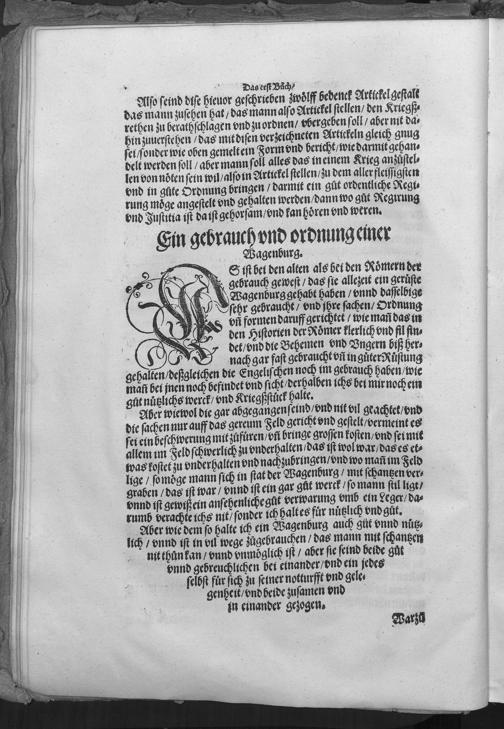 Das erst Bůch/
Also seind dise hieuor geschrieben zwölff bedenck Artickel gestalt
das mann zusehen hat/ das mann also Artickel stellen/ den Kriegß-
rethen zu berathschlagen vnd zu ordnen/ vbergeben soll/ aber nit da-
hin zuuerstehen/ das mit disen verzeichneten Artickeln gleich gnug
sei/ sonder wie oben gemelt ein Form vnd bericht/ wie darmit gehan-
delt werden soll/ aber mann soll alles das in einem Krieg anzůstel-
len von nöten sein wil/ also in Artickel stellen/ zu dem aller fleissigsten
vnd in gůte Ordnung bringen/ darmit ein gůt ordentliche Regi-
rung möge angestelt vnd gehalten werden/ dann wo gůt Regirung
vnd Justitia ist da ist gehorsam/ vnd kan hören vnd weren.
Ein gebrauch vnd ordnung einer
Wagenburg.
ES ist bei den alten als bei den Römern der
gebrauch gewest/ das sie allezeit ein gerüste
Wagenburg gehabt haben/ vnnd dasselbige
sehr gebraucht/ vnd jhre sachen/ Ordnung
vñ formen daruff gerichtet/ wie mañ das in
den Historien der Römer klerlich vnd fil fin-
det/ vnd die Behemen vnd Vngern biß her-
nach gar fast gebraucht vñ in gůter Rüstung
gehalten/ deßgleichen die Engelischen noch im gebrauch haben/ wie
mañ bei jnen noch befindet vnd sicht/ derhalben ichs bei mir noch ein
gůt nützlichs werck/ vnd Kriegßstück halte.
Aber wiewol die gar abgegangen seind/ vnd nit vil geachtet/ vnd
die sachen nur auff das gereum Feld gericht vnd gestelt/ vermeint es
sei ein beschwerung mit zůfüren/ vñ bringe grossen kosten/ vnd sei mit
allem im Feld schwerlich zu vnderhalten/ das ist wol war/ das es et-
was kostet zu vnderhalten vnd nachzubringen/ vnd wo mañ im Feld
lige/ so möge mann sich in stat der Wagenburg/ mit schantzen ver-
graben/ das ist war/ vnnd ist ein gar gůt werck/ so mann stil ligt/
vnnd ist gewiß ein ansehenliche gůt verwarung vmb ein Leger/ da-
rumb verachte ichs nit/ sonder ich halt es für nützlich vnd gůt.
Aber wie dem so halte ich ein Wagenburg auch gůt vnnd nütz-
lich/ vnnd ist in vil wege zůgebrauchen/ das mann mit schantzen
nit thůn kan/ vnnd vnmöglich ist/ aber sie seind beide gůt
vnnd gebreuchlichen bei einander/ vnd ein jedes
selbst für sich zu seiner notturfft vnd gele-
genheit/ vnd beide zusamen vnd
zu einander gezogen.
Warzů